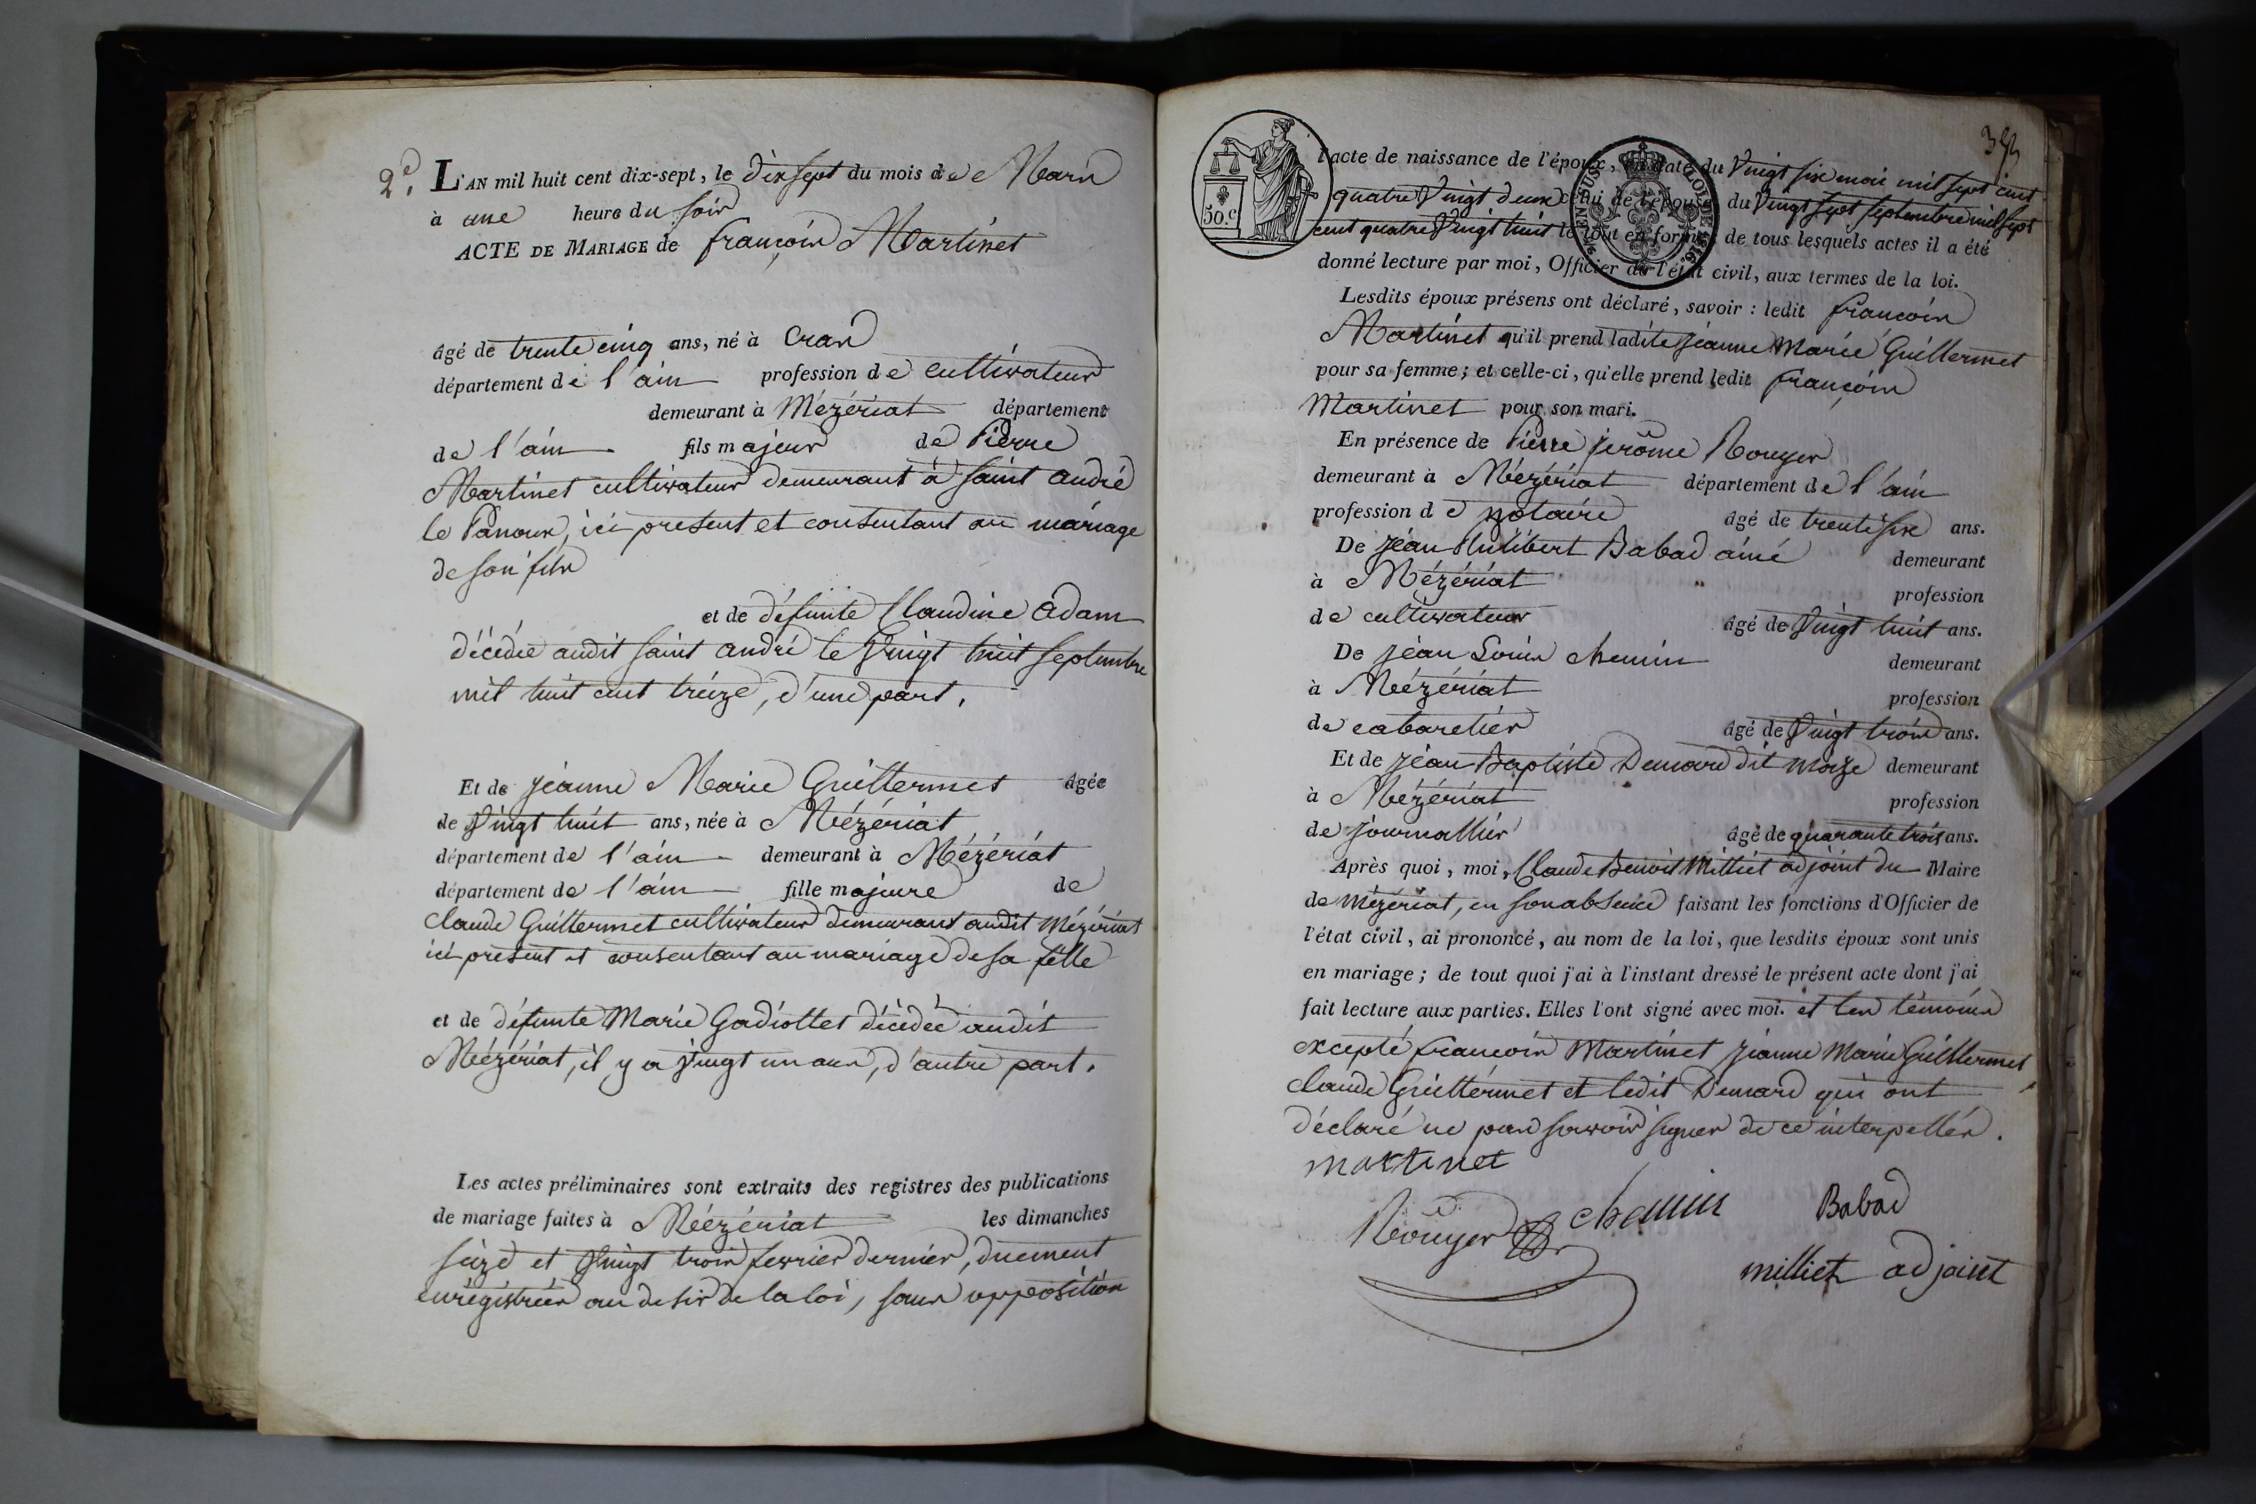 2e. L'AN mil huit cent dix-sept, le dix sept du mois de Mars
à une heure du soir
ACTE DE MARIAGE de françois Martinet
âgé de trente cinq ans, né à Cras
département de l'ain profession de cultivateur
demeurant à Mézériat département
de l'ain fils majeur de Pierre
Martinet cultivateur demeurant à saint andré
le Panoux, ici present et consentant au mariage
de son fils
et de défunte Claudine Adam
décédée audit saint andré le Vingt huit septembre
mil huit cent treize, d'une part.
Et de jeanne Marie Guillermet âgée
de Vingt huit ans, née à Mézériat
département de l'ain demeurant à Mézériat
département de l'ain fille majeure de
Claude Guillermet cultivateur demeurant audit Mézériat
ici présent et consentant au mariage de sa fille
et de défunte Marie Gadiollet décédée audit
Mézériat, il y a Vingt un ans, d'autre part.
Les actes préliminaires sont extraits des registres des publications
de mariage faites à Mézériat les dimanches
seize et Vingt trois fevrier dernier, duement
enrégistrées au desir de la loi, sans opposition
50.c
EN SUS LOI DE 1816.
l'acte de naissance de l'époux, en date du Vingt six mai mil sept cent
quatre Vingt deux celui de l'épouse du Vingt sept septembre mil sept
cent quatre Vingt huit le tout en forme; de tous lesquels actes il a été
donné lecture par moi, Officier de l'état civil, aux termes de la loi.
Lesdits époux présens ont déclaré, savoir : ledit françois
Martinet qu'il prend ladite jeanne Marie Guillermet
pour sa femme; et celle-ci, qu'elle prend ledit françois
Martinet pour son mari.
En présence de Pierre jerôme Rouyer
demeurant à Mézériat département de l'ain
profession de notaire âgé de trente six ans.
De jean Philibert Babad ainé demeurant
à Mézériat profession
de cultivateur âgé de Vingt huit ans.
De jean Louis chemin demeurant
à Mézériat profession
de cabaretier âgé de Vingt trois ans.
Et de jean Baptiste Demard dit moize demeurant
à Mézériat profession
de journallier âgé de quarante trois ans.
Après quoi, moi, Claude Benoit Milliet adjoint du Maire
de Mézériat, en son absence faisant les fonctions d'Officier de
l'état civil, ai prononcé, au nom de la loi, que lesdits époux sont unis
en mariage; de tout quoi j'ai à l'instant dressé le présent acte dont j'ai
fait lecture aux parties. Elles l'ont signé avec moi. et les témoins
excepté françois Martinet jeanne Marie Guillermet
Claude Guillermet et ledit Demard qui ont
déclaré ne pas savoir signer de ce interpellés.
martinet
Rouyer chemin Babad
milliet adjoint